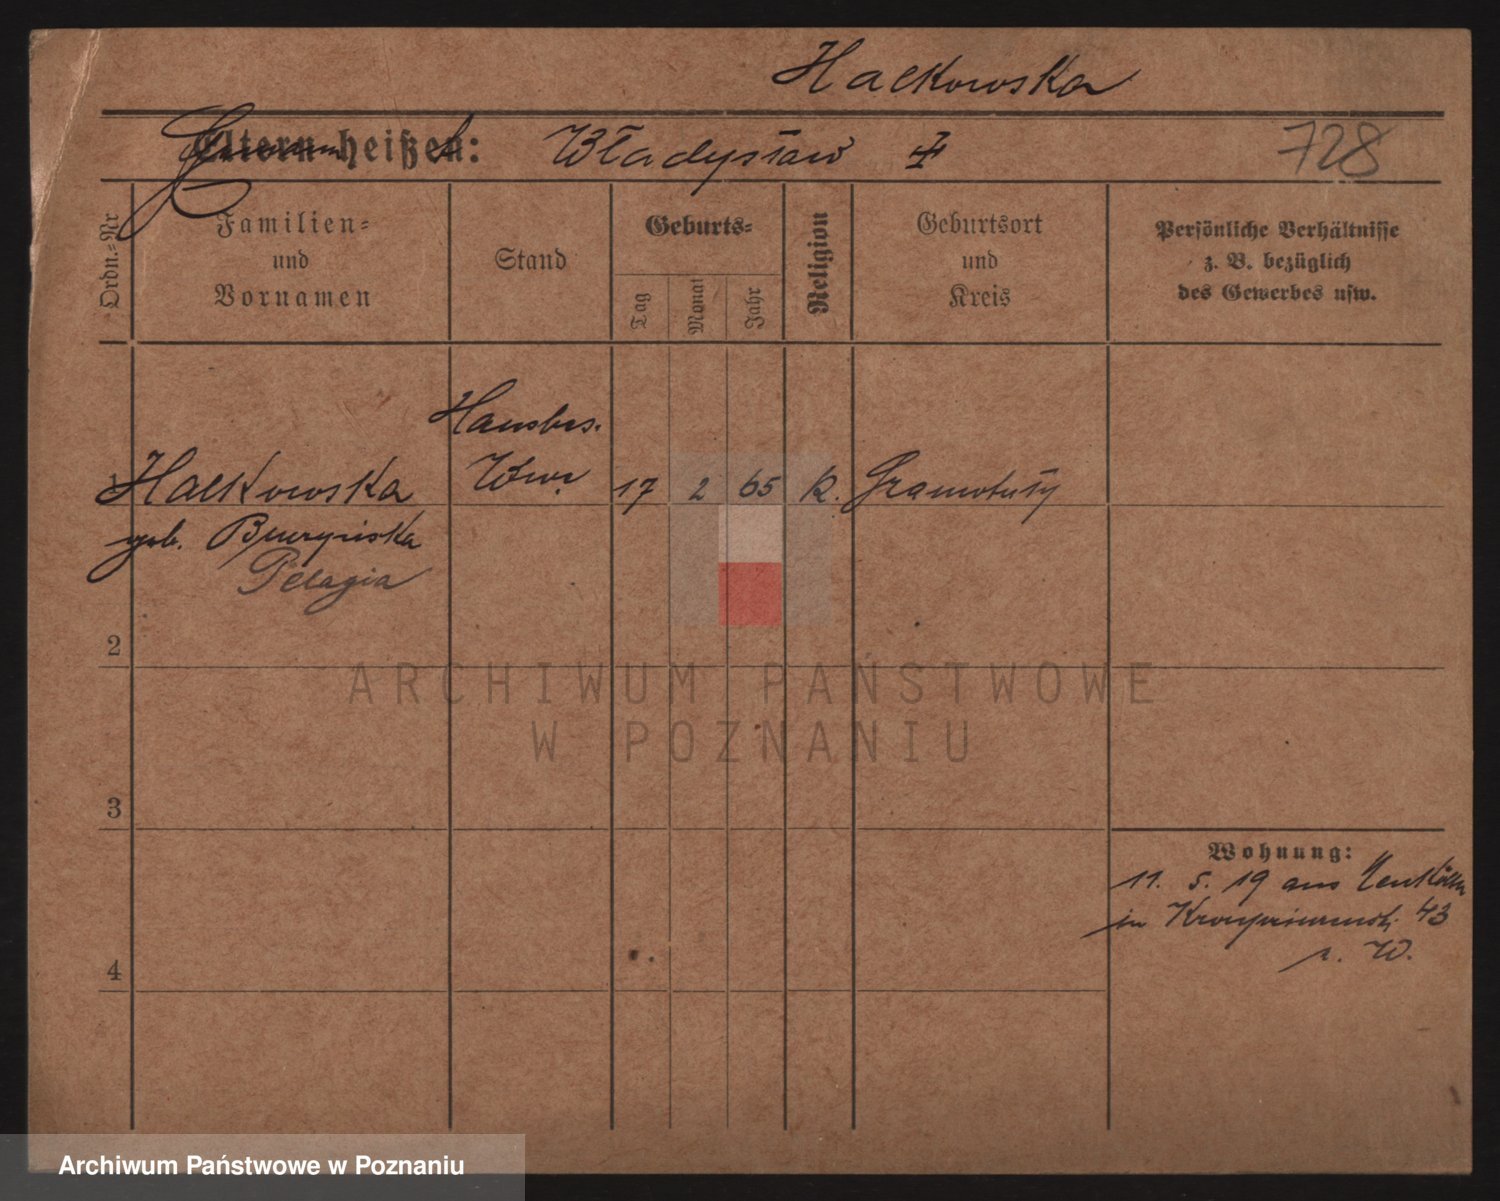 Halkowska
Eltern heißen: Władysław
728
Ordn.-Nr
Familien-
und
Vornamen
Stand
Geburts-
Tag
Monat
Jahr
Religion
Geburtsort
und
Kreis
Persönliche Verhältnisse
z. B. bezüglich
des Gewerbes usw.
Hausbes.
Wwe
1 Halkowska 17 2 65 k.
geb.
Pelagia
2
3
4
ARCHIWUM PAŃSTWOWE
W POZNANIU
Wohnung:
11. 5. 19 aus Neukölln
in Kronprinzenstr. 43
W.
Archiwum Państwowe w Poznaniu